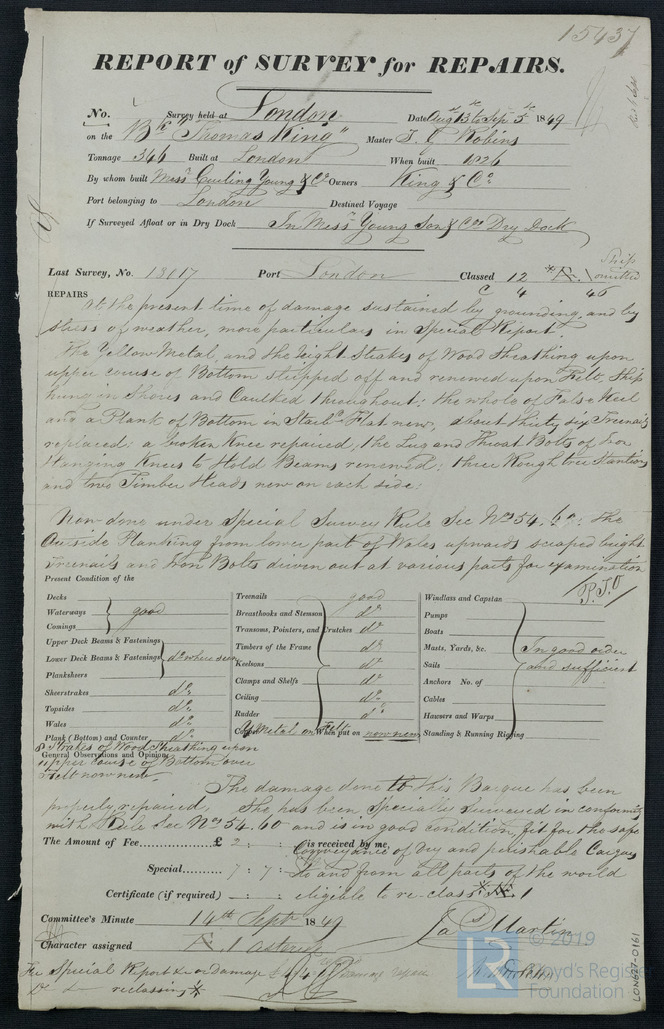 15437
REPORT of SURVEY for REPAIRS.
No. Survey held at London Date Aug 13 to Sep 5 1849
on the Bk "Thomas King" Master T. G. Robins
Tonnage 346 Built at London When built 1826
By whom built Messrs Curling Young & Co Owners King & Co
Port belonging to London Destined Voyage
If Surveyed Afloat or in Dry Dock In Messrs Young Son & Co's Dry Dock
Last Survey, No. 18017 Port London Classed 12 *Æ. 1 Ship omitted
C 4 46
REPAIRS
At the present time of damage sustained by grounding, and by
stress of weather, more particulars in Special Report.
The Yellow Metal, and the Eight Strakes of Wood Sheathing upon
upper course of Bottom stripped off and renewed upon Felt, Ship
hung in Shores and Caulked throughout; the whole of False Keel
and a Plank of Bottom in Starbd Flat new, about thirty six Treenails
replaced; a broken Knee repaired, the Lug and Throat Bolts of Iron
Hanging Knees to Hold Beams renewed; three Rough tree Stantions
and two Timber Heads new on each side:
Now done under Special Survey Rule Sec Nos 54. 60: the
Outside Planking from lower part of Wales upwards scraped bright
Treenails and Iron Bolts driven out at various parts for examination
P.T.O
Present Condition of the
Decks
Waterways good
Comings
Upper Deck Beams & Fastenings
Lower Deck Beams & Fastenings do where seen
Planksheers
Sheerstrakes do
Topsides do
Wales do
Plank (Bottom) and Counter do
8 Strakes of Wood Sheathing upon
upper course of Bottom over
Felt now new
Treenails good
Breasthooks and Stemson do
Transoms, Pointers, and Crutches do
Timbers of the Frame do
Keelsons do
Clamps and Shelfs do
Ceiling do
Rudder do
Copper Y Metal on Felt When put on now new
Windlass and Capstan
Pumps
Boats
Masts, Yards, &c. In good order
Sails and sufficient
Anchors No. of
Cables
Hawsers and Warps
Standing & Running Rigging
General Observations and Opinion
The damage done to this Barque has been
properly repaired. She has been Specially Surveyed in conformity
with Rule Sec Nos 54. 60 and is in good condition, fit for the safe
Conveyance of Dry and perishable Cargoes
to and from all parts of the world
eligible to re-class *Æ 1
The Amount of Fee £ 2 : is received by me,
Special 7 : 7 :
Certificate (if required) — : :
Committee's Minute 14th Sept 1849
Character assigned Æ 1 asterisk
Jas Martin
For Special Report & on damage £
Do reclassing *
© 2019
LR
Lloyd's Register
Foundation
LON627-0161